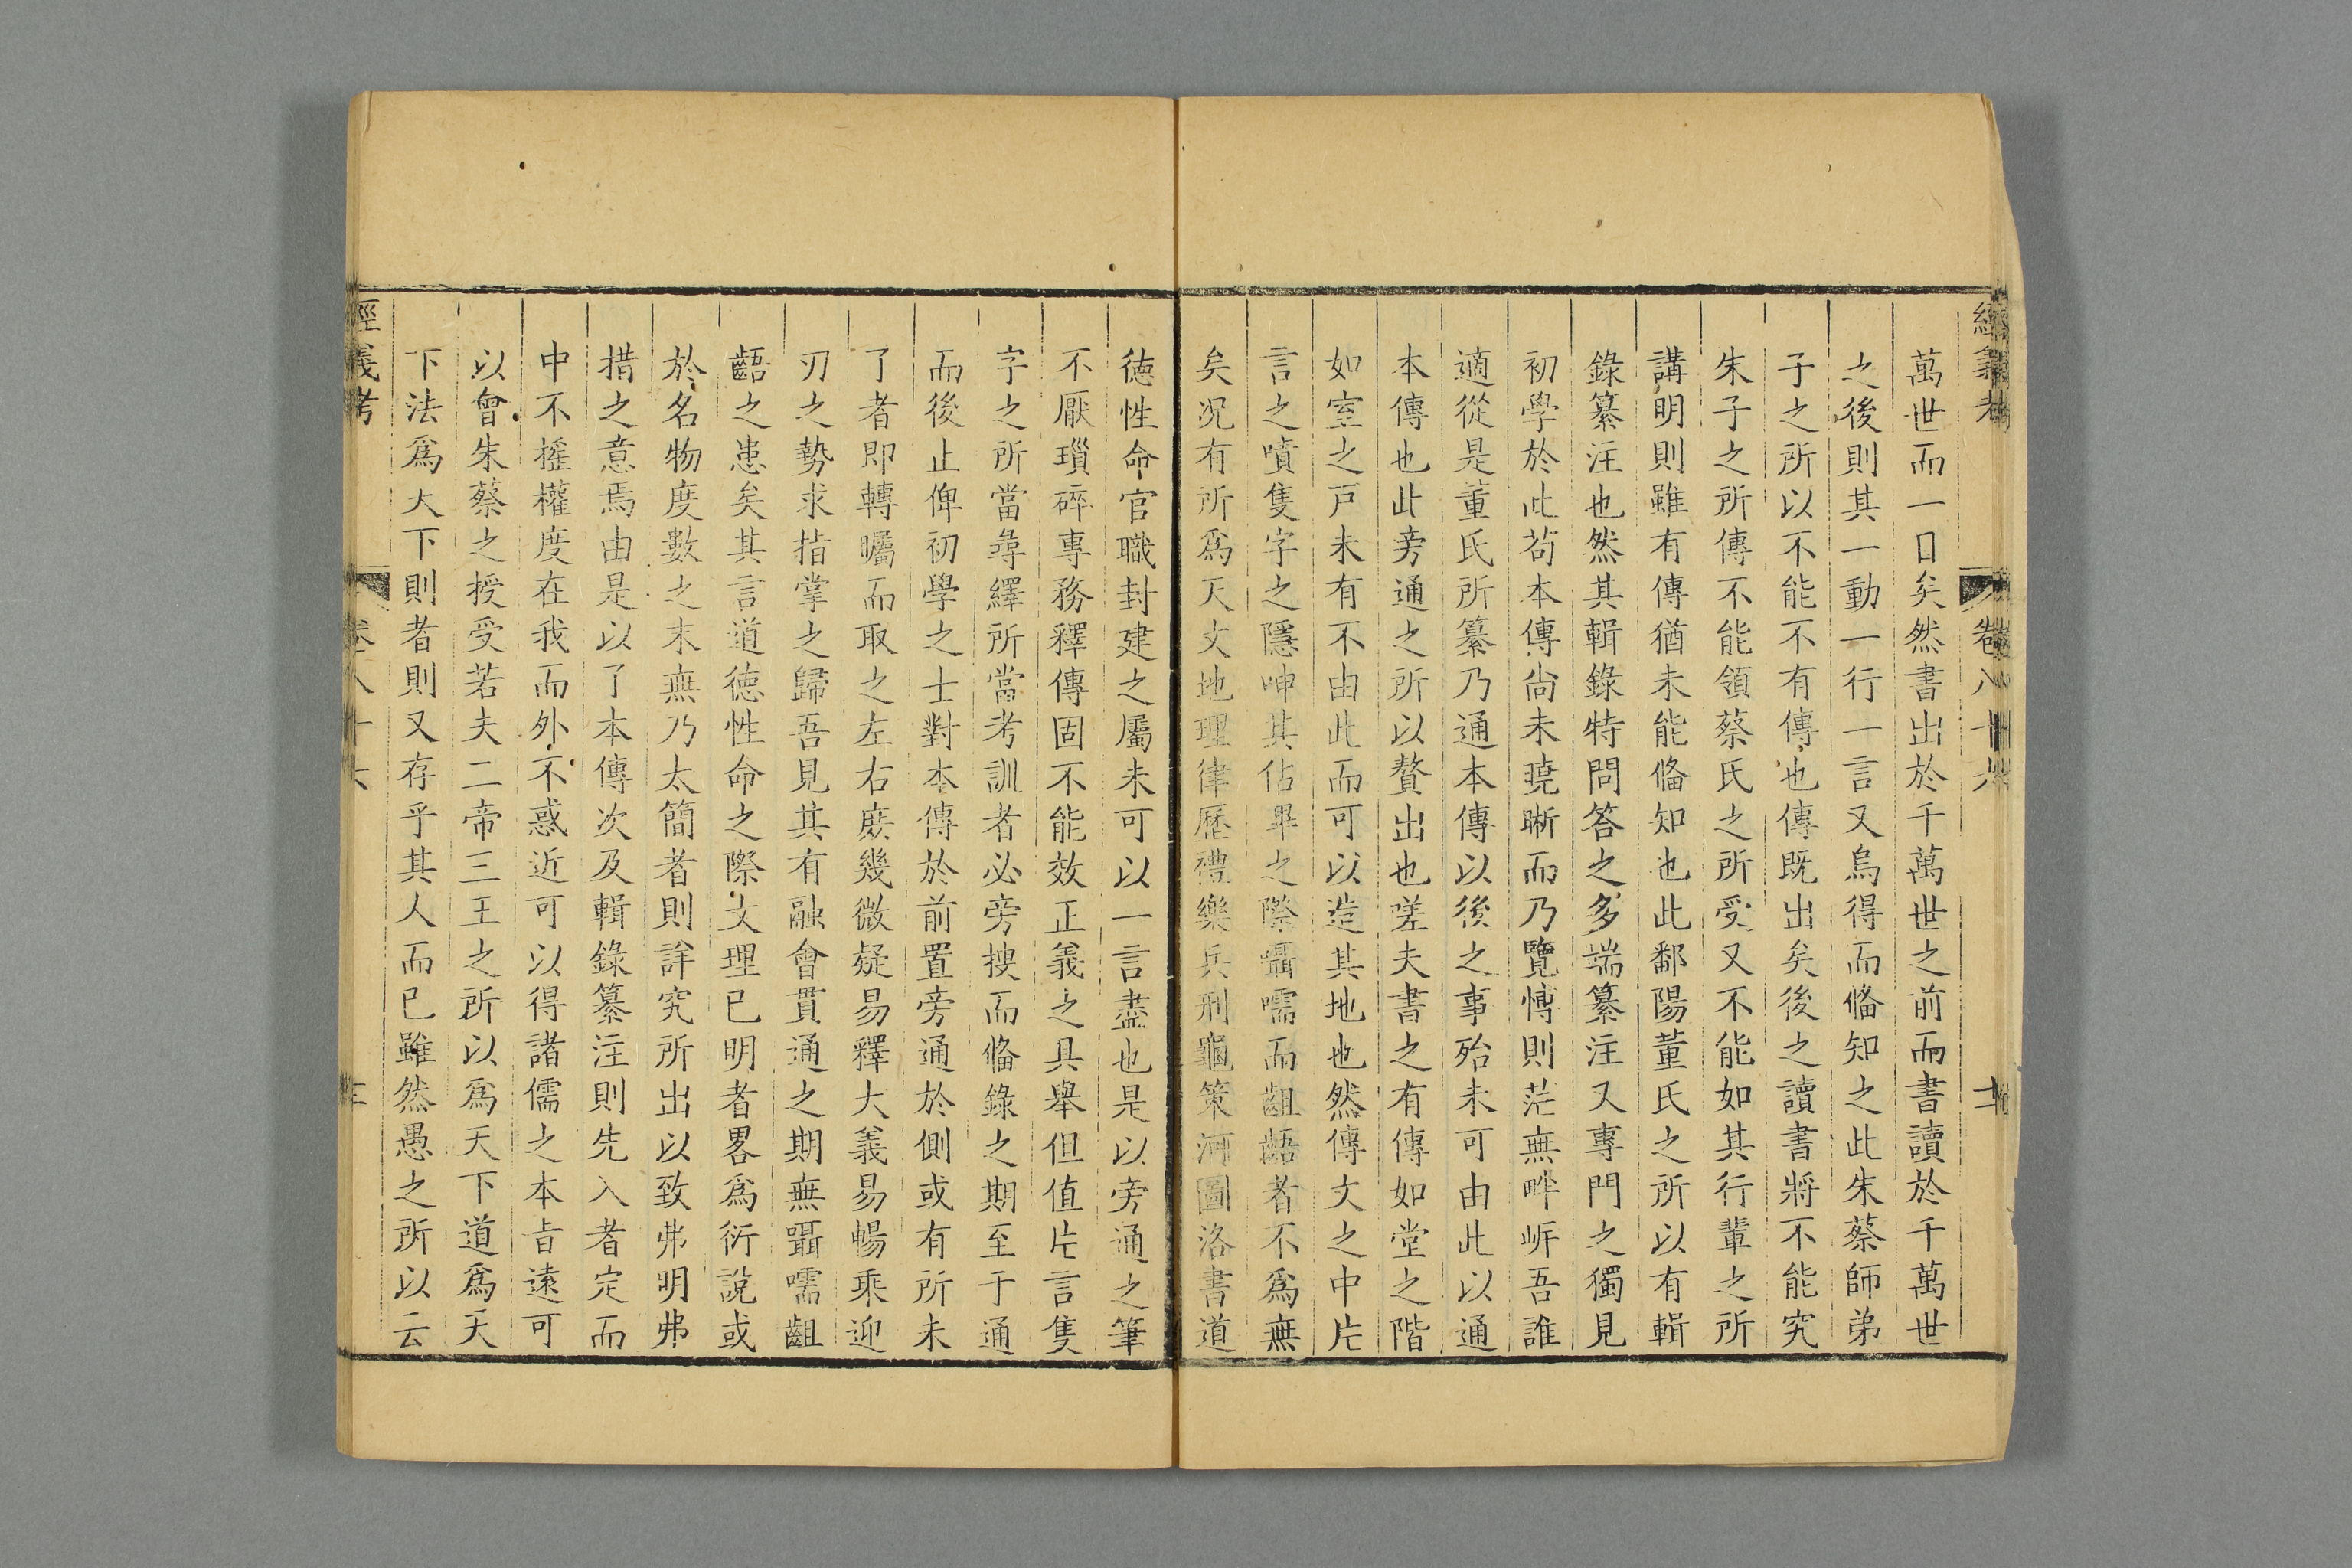 經義考 卷八十六 十二
萬世而一日矣然書出於千萬世之前而書讀於千萬世
之後則其一動一行一言又烏得而俻知之此朱蔡師弟
子之所以不能不有傳也傳既出矣後之讀書將不能究
朱子之所傳不能領蔡氏之所受又不能如其行輩之所
講明則雖有傳猶未能俻知也此鄱陽董氏之所以有輯
錄纂注也然其輯錄特問答之多端纂注又專門之獨見
初學於此茍本傳尚未曉晰而乃覽愽則茫無畔岸吾誰
適從是董氏所纂乃通本傳以後之事殆未可由此以通
本傳也此旁通之所以贅出也嗟夫書之有傳如堂之階
如室之戸未有不由此而可以造其地也然傳文之中片
言之嘖隻字之隱呻其佔畢之際囁嚅而齟齬者不為無
矣况有所為天文地理律歷禮樂兵刑龜策河圖洛書道
德性命官職封建之屬未可以一言盡也是以旁通之筆
不厭瑣碎專務釋傳固不能效正義之具舉但值片言隻
字之所當尋繹所當考訓者必旁搜而俻錄之期至于通
而後止俾初學之士對本傳於前置旁通於側或有所未
了者即轉矚而取之左右庻幾微疑易釋大義易暢乘迎
刃之勢求指掌之歸吾見其有融會貫通之期無囁嚅齟
齬之患矣其言道德性命之際文理已明者畧為衍說或
於名物度數之末無乃太簡者則詳究所出以致弗明弗
措之意焉由是以了本傳次及輯錄纂注則先入者定而
中不摇權度在我而外不惑近可以得諸儒之本㫖遠可
以會朱蔡之授受若夫二帝三王之所以為天下道為天
下法為天下則者則又存乎其人而已雖然愚之所以云
經義考 卷八十六